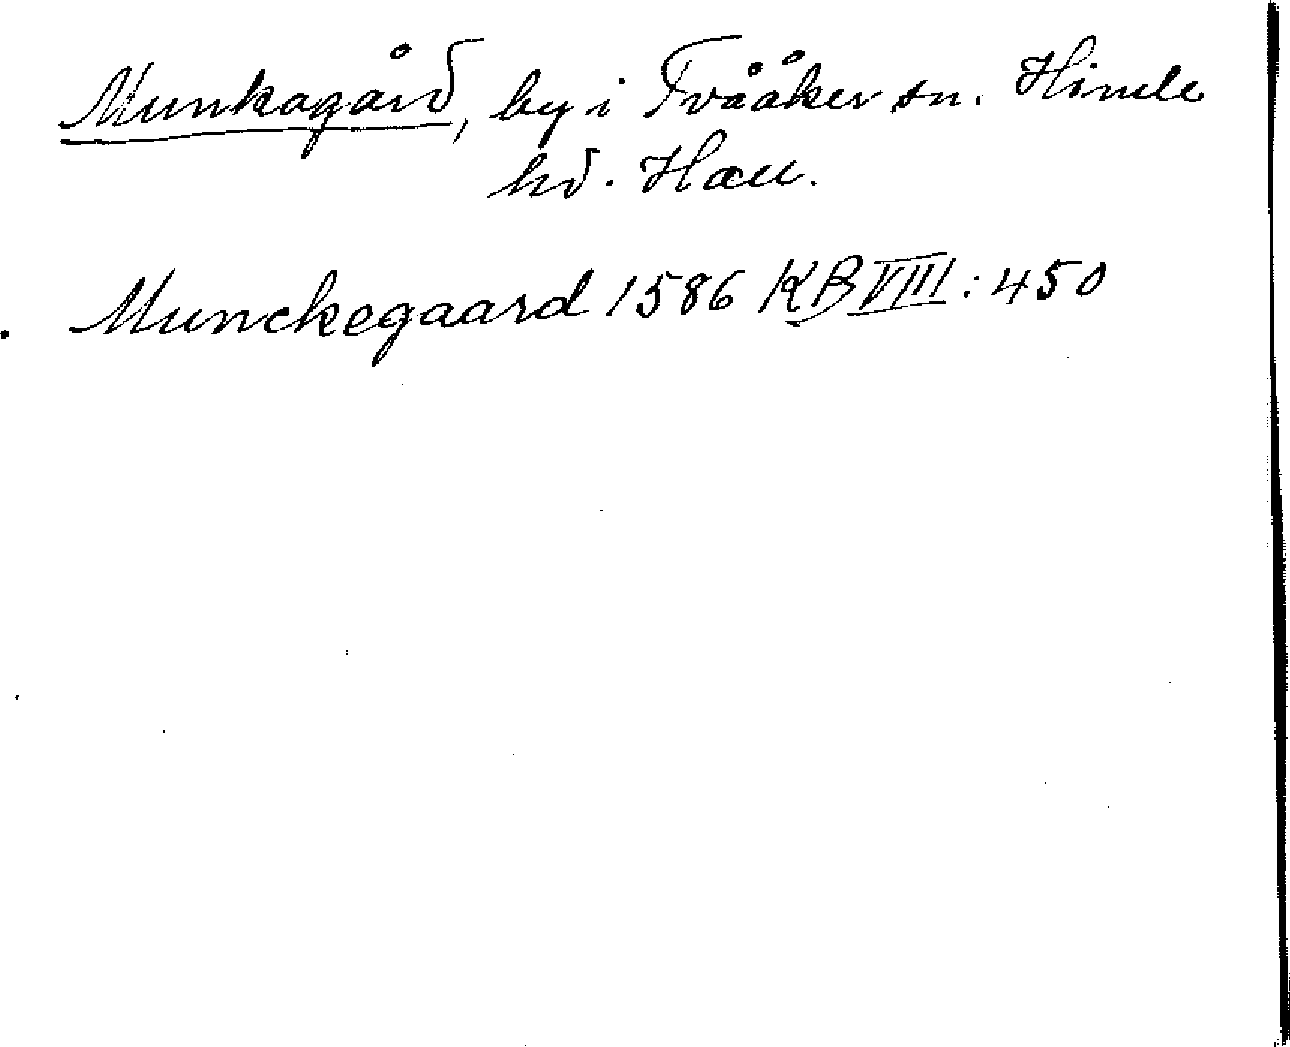 Munkagård, by i Tvååker sn. Himle
hd. Hall.
Munckegaard 1586 KB VIII: 450